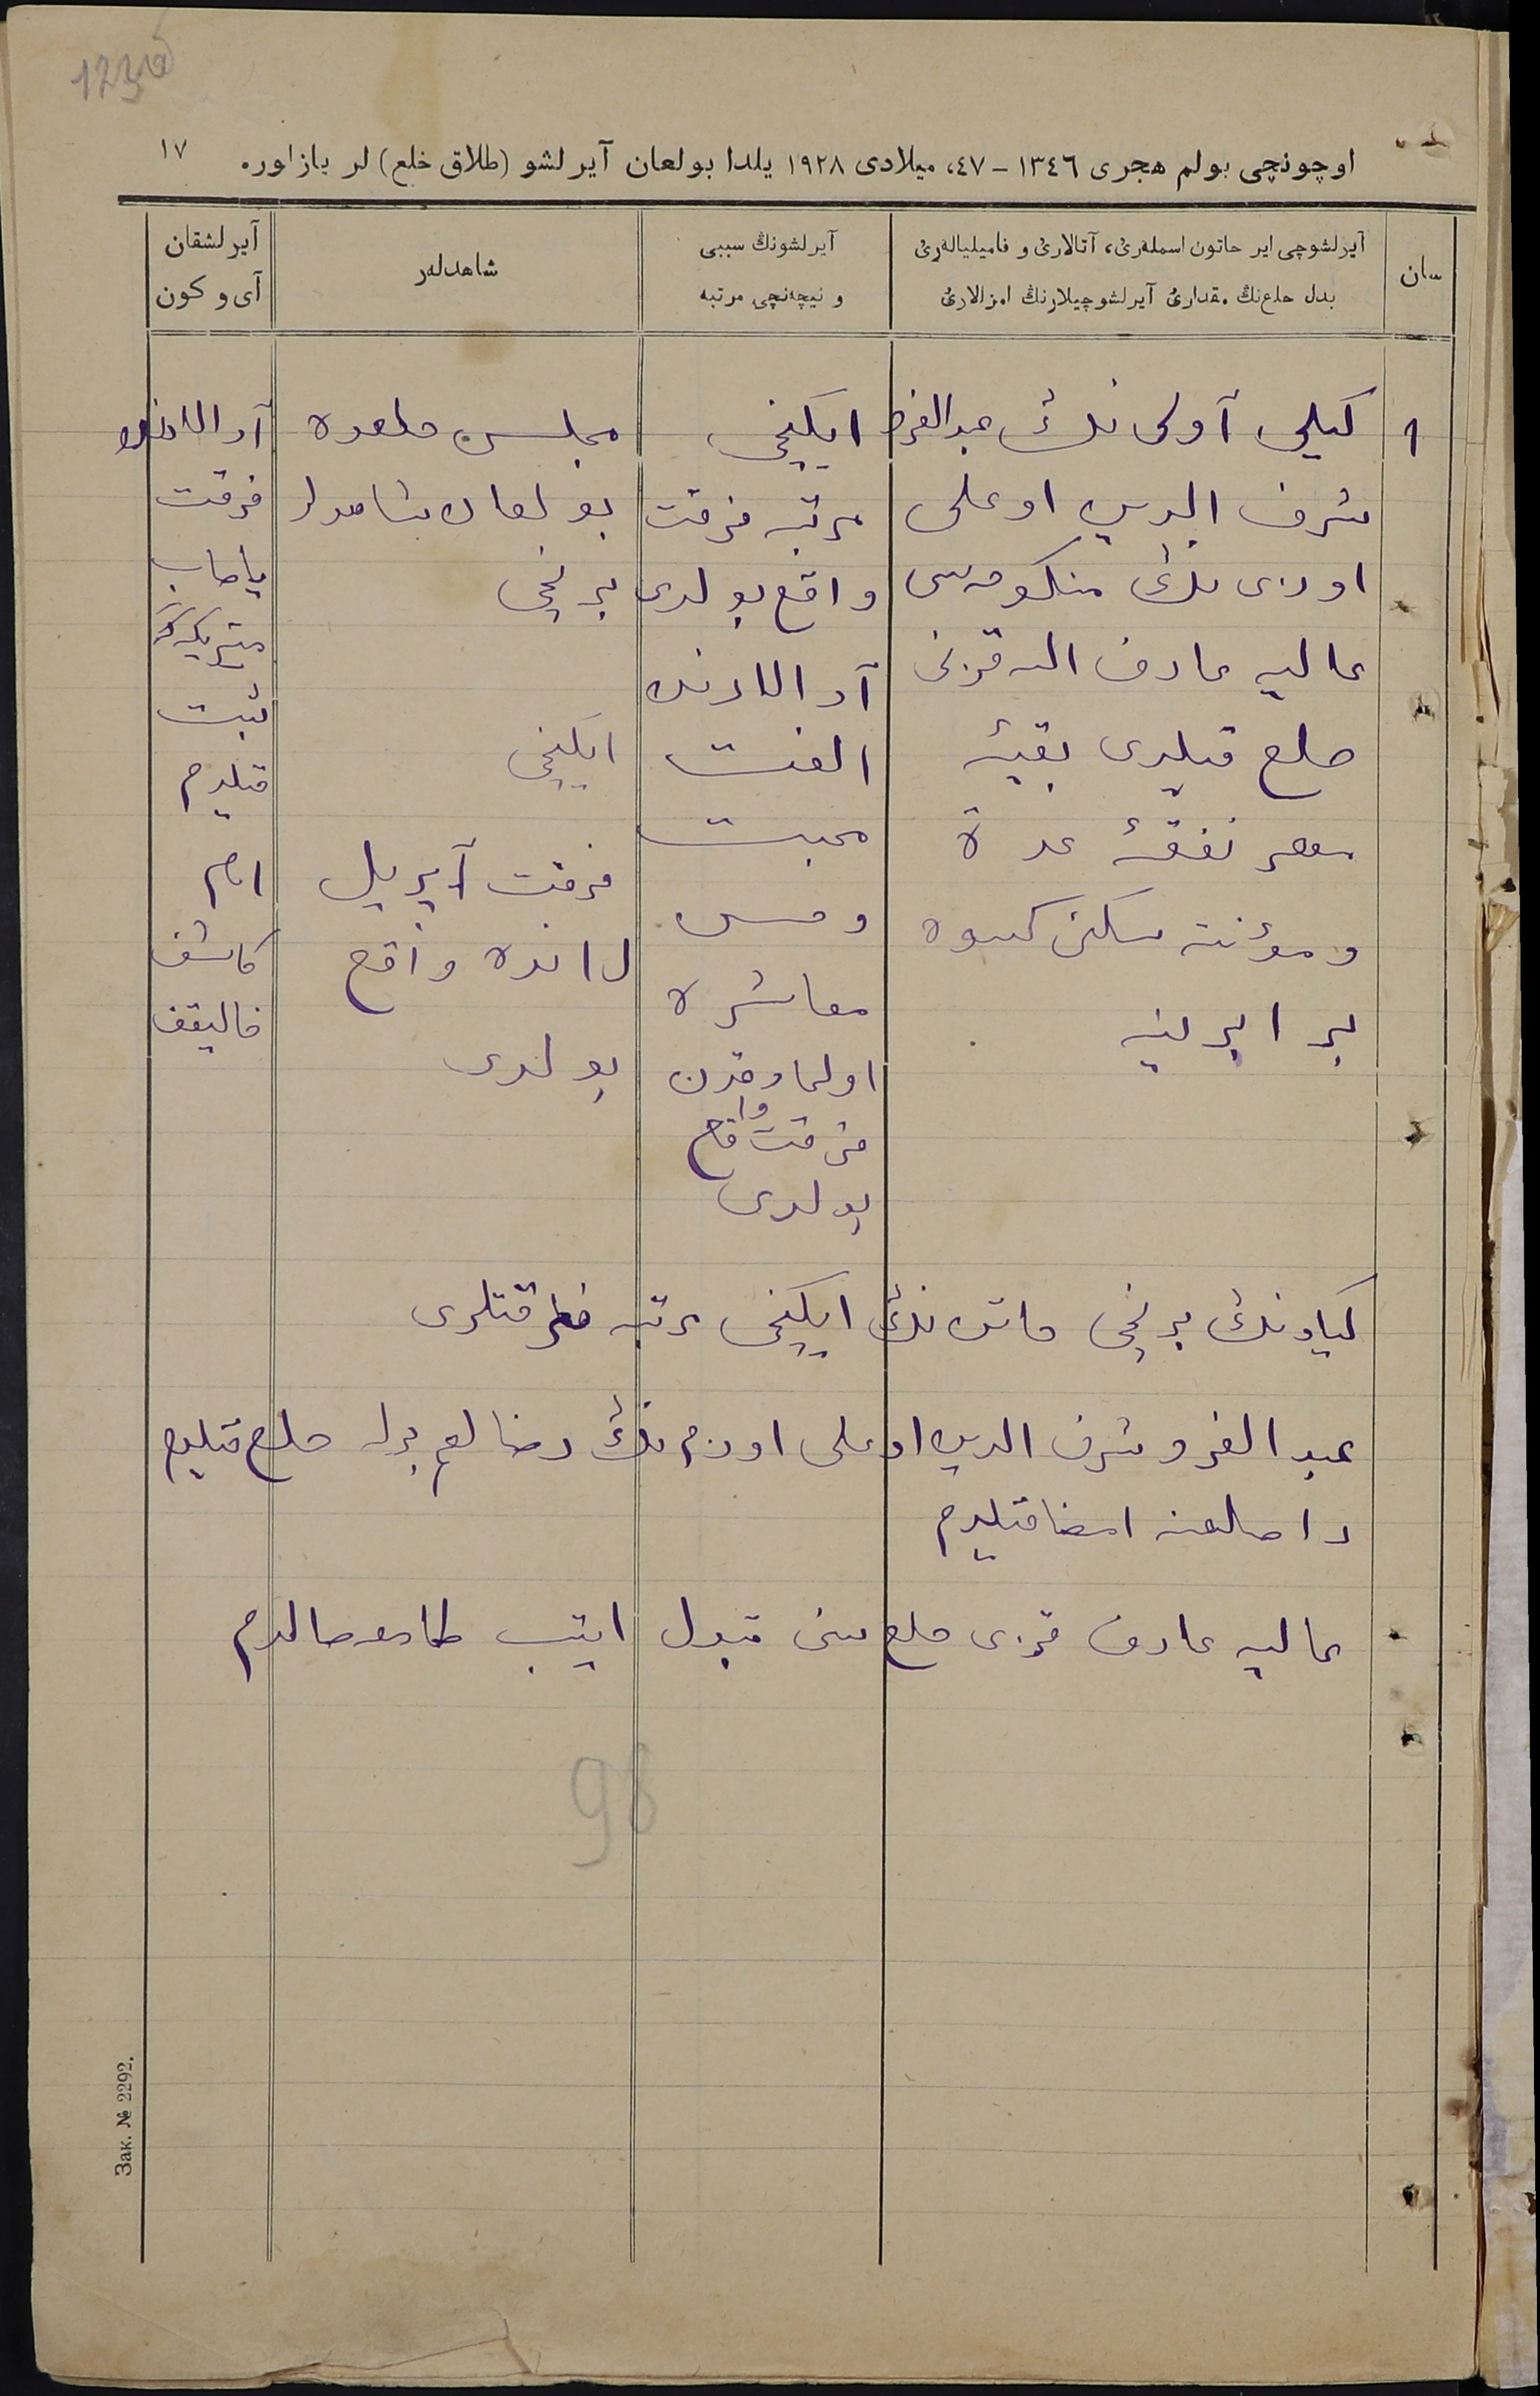 123 об
اوچونچی بولم هجری ١٣٤٦ – ٤٧، میلادی ١٩٢٨ یلدا بولعان آیرلشو (طلاق خلع) لر یازلور.
١٧
سان
آیرلشوچی ایر حاتون اسملەرئ، آتالارئ و فامیلیالەرئ
بدل خلع‌نڭ مقدارئ آیرلشوچیلارنڭ امزالارئ
آیرلشونڭ سببی
و نیچەنچی مرتبه
شاهدلەر
آیرلشقان
آی و کون
١
کیلی آولی نڭ عبدالغفر
شرف الدین اوغلی
اوزی نڭ منکوحەسی
عالیه عارف الله قزنی
خلع قیلدی بقیهٔ
مهر نفقهٔ عدة
و مؤنت سکنی کسوه
بر ابرینه
ایکنچی
مرتبه فرقت
واقع بولدی
آرالارنده
الفت
محبت
و حسن
معاشره
اولماوقدن
فرقت واقع
بولدی
مجلس خلعده
بولعان شاهدلر
برنچی
ایکنچی
فرقت آپریل
ل انده واقع
بولدی
آرالارنده
فرقت
یاصاب
متریکه گه
ثبت
قیلدم
امام
کاشف
خالیقف
کیاونڭ برنچی خاتن نڭ ایکنچی مرتبه فرقتلری
عبد الغفر شرف الدین اوغلی اوزم نڭ رضالعم برله خلع قیلیم
راضالعنه امضا قیلدم
عالیه عارف قزی خلع سنی قبول ایتیب طامعه صالدم
98
Зак. № 2292.